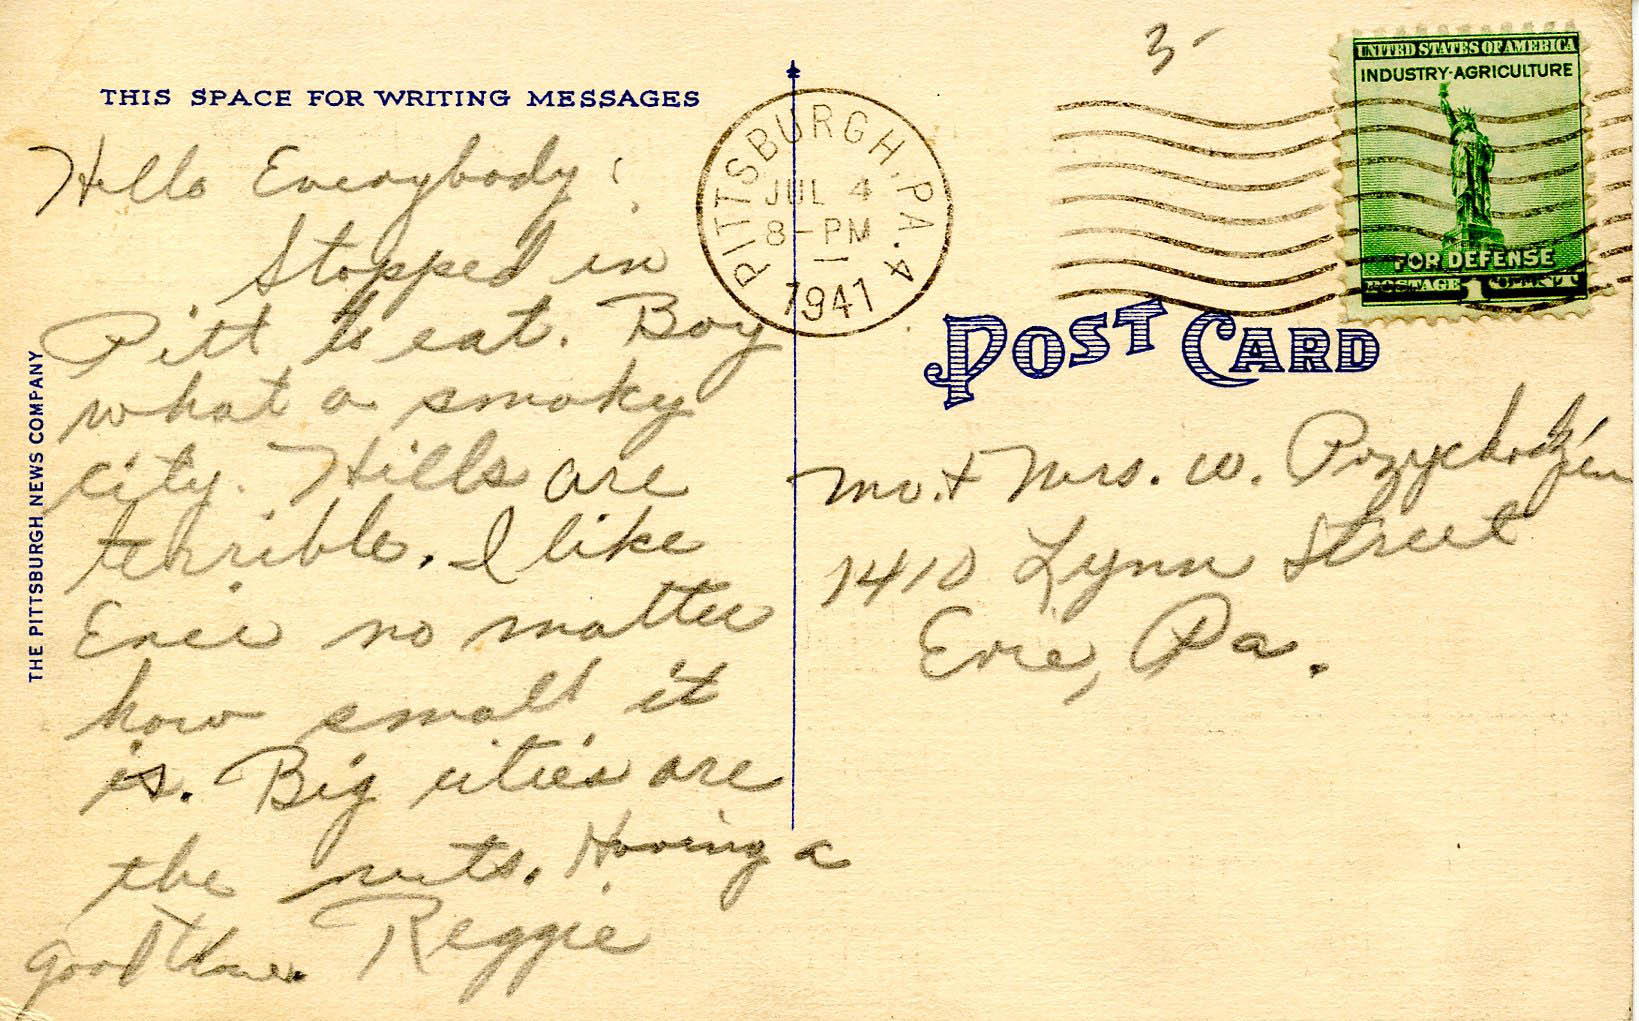 THIS SPACE FOR WRITING MESSAGES
Hello Everybody:
Stopped in
Pitt to eat. Boy
what a smoky
city. Hills are
terrible. I like
Erie no matter
how small it
is. Big cities are
the nuts. Having a
good time. Reggie
THE PITTSBURGH NEWS COMPANY
PITTSBURGH, PA. 4
JUL 4
8-PM
1941
3-
UNITED STATES OF AMERICA
INDUSTRY-AGRICULTURE
FOR DEFENSE
POSTAGE 1 CENT 1
POST CARD
Mr. + Mrs. W.
1410 Lynn Street
Erie, Pa.